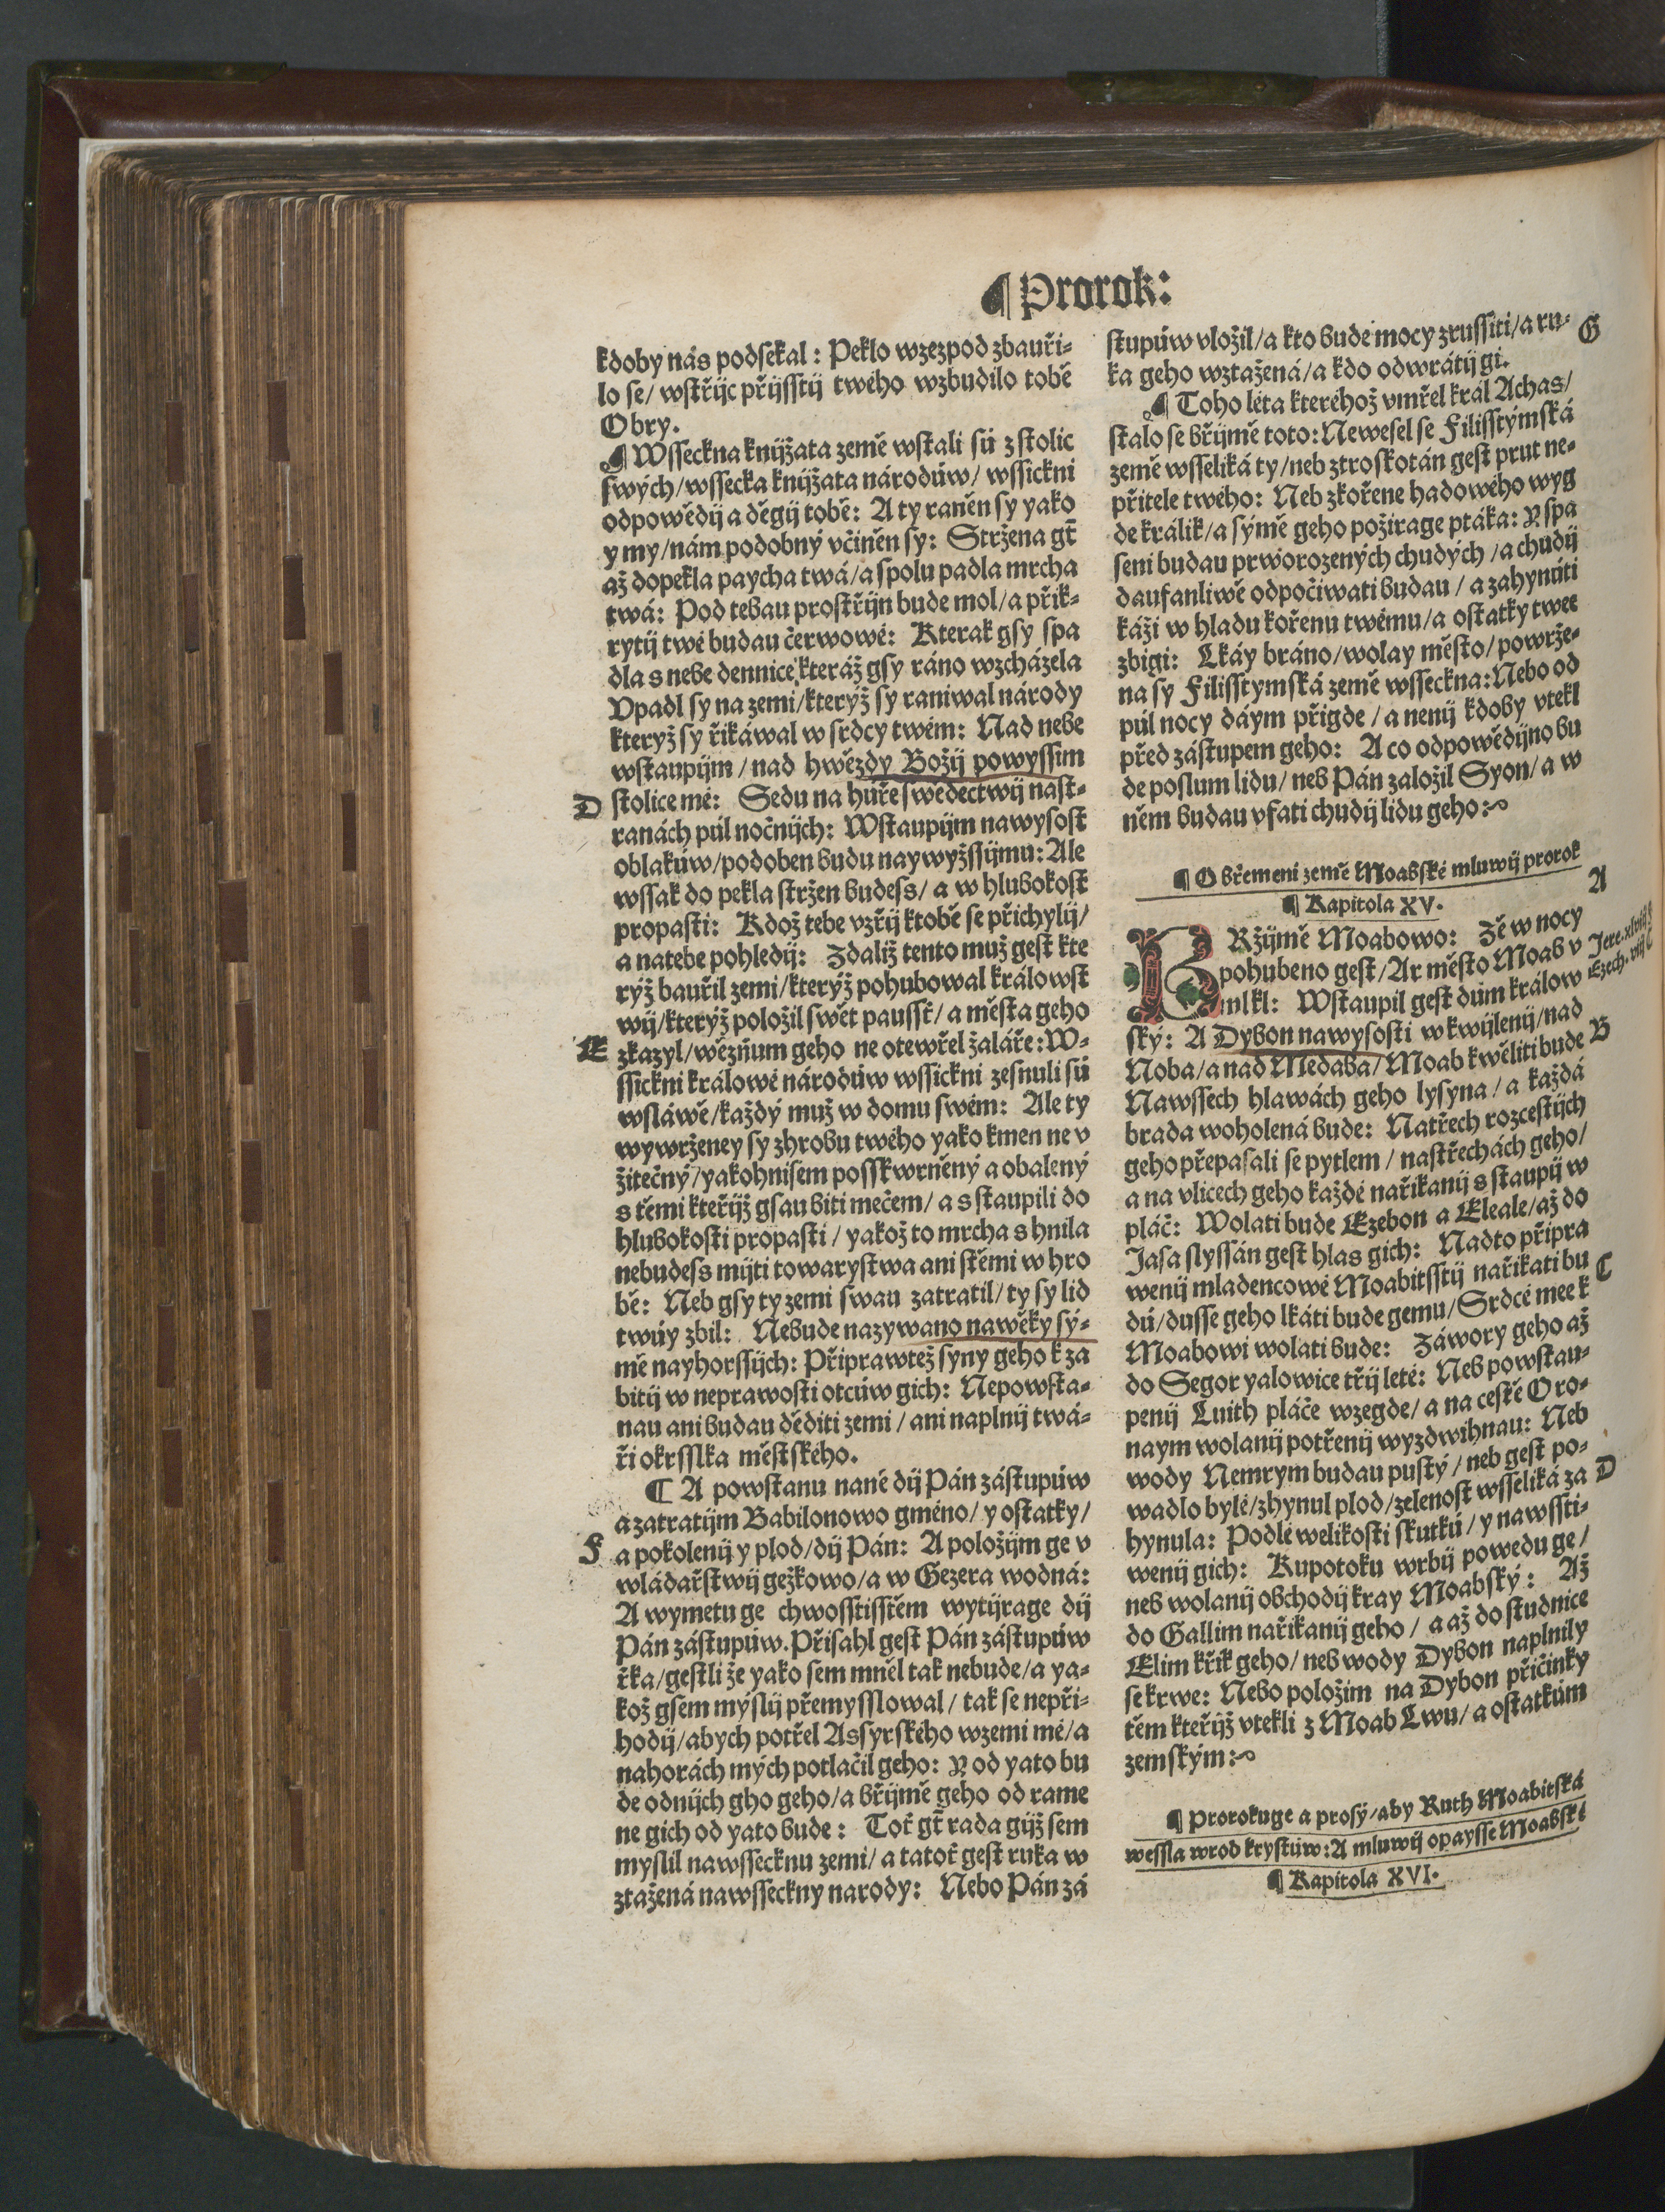 ¶ Prorok:
kdoby nás podsekal: Peklo wzezpod zbauři-
lo se/ wstřijc přijsstij twého wzbudilo tobě
Obry.
¶ Wsseckna knijžata země wstali sú z stolic
swých/wssecka knijžata národúw/ wssickni
odpowědij a děgij tobě: A ty raněn sy yako
y my/nám podobný včiněn sy: Stržena gt̃
až dopekla paycha twá/a spolu padla mrcha
twá: Pod tebau prostřijn bude mol/a přik-
rytij twé budau čerwowé: Kterak gsy spa
dla s nebe dennice kteráž gsy ráno wzcházela
Vpadl sy na zemi/kterýž sy raniwal národy
kterýž sy řikáwal w srdcy twém: Nad nebe
wstaupijm/nad hwězdy Božij powyssim
D
stolice mé: Sedu na huře swědectwij nast-
ranách púl nočnijch: Wstaupijm nawysost
oblakúw/podoben budu naywyžssijmu: Ale
wssak do pekla stržen budess/ a w hlubokost
propasti: Kdož tebe vzřij ktobě se přichylij/
a natebe pohledij: Zdaliž tento muž gest kte
rýž bauřil zemi/kterýž pohubowal králowst
wij/kterýž položil swět paussť/a města geho
E
zkazyl/wězňum geho ne otewřel žaláře: W-
ssickni králowé národúw wssickni zesnuli sú
wsláwě/každý muž w domu swém: Ale ty
wywrženey sy zhrobu twého yako kmen ne v
žitečný/yakohnisem posskwrněný a obalený
s těmi kteřijž gsau biti mečem/ a s staupili do
hlubokosti propasti/ yakož to mrcha s hnila
nebudess mijti towarystwa ani stěmi w hro
bě: Neb gsy ty zemi swau zatratil/ty sy lid
twúy zbil: Nebude nazywano nawěky sý-
mě nayhorssijch: Připrawtež syny geho k za
bitij w neprawosti otcúw gich: Nepowsta-
nau ani budau děditi zemi/ ani naplnij twá-
ři okrsslka městského.
¶ A powstanu naně dij Pán zástupúw
a zatratijm Babilonowo gméno/ y ostatky/
F
a pokolenij y plod/dij Pán: A položijm ge v
wládařstwij gežkowo/a w Gezera wodná:
A wymetu ge chwosstisstěm wytijrage dij
Pán zástupúw. Přisahl gest Pán zástupúw
řka/gestli že yako sem mněl tak nebude/a ya-
kož gsem mýslij přemysslowal/ tak se nepři-
hodij/abych potřel Assyrského wzemi mé/a
nahorách mých potlačil geho: Y od yato bu
de odnijch gho geho/a břijmě geho od rame
ne gich od yato bude: Toť gt̃ rada gijž sem
myslil nawsseck̃nu zemi/ a tatoť gest ruka w
ztažená nawsseckny narody: Nebo Pán zá
stupúw vložil/a kto bude mocy zrussiti/a ru-
G
ka geho wztažená/a kdo odwrátij gi.
¶ Toho léta kteréhož vmřel král Achas/
stalo se břijmě toto: Newesel se Filisstýmská
země wsseliká ty/neb ztroskotán gest prut ne-
přitele twého: Neb zkořene hadowého wyg
de králik/a sýmě geho požirage ptáka: Y spa
seni budau prworozených chudých/a chudij
daufanliwě odpočiwati budau/ a zahynúti
káži w hladu kořenu twému/a ostatky twee
zbigi: Lkáy bráno/wolay město/powrže-
na sy Filisstymská země wsseckna: Nebo od
púl nocy dáym přigde/a nenij kdoby vtekl
před zástupem geho: A co odpowědijno bu
de poslum lidu/ neb Pán založil Syon/ a w
něm budau vfati chudij lidu geho:
¶ O břemeni země Moabské mluwij prorok
A
¶ Kapitola XV.
BRžijmě Moabowo: Zě w nocy
pohubeno gest/Ar město Moab v
mlkl: Wstaupil gest dúm králow
ský: A Dybon nawysosti w kwijlenij/nad
B
Noba/a nad Medaba/Moab kwěliti bude
Nawssech hlawách geho lysyna/ a každá
brada woholená bude: Natřech rozcestijch
geho přepasali se pytlem/ nastřechách geho/
a na vlicech geho každé nařikanij s staupij w
pláč: Wolati bude Ezebon a Eleale/až do
Jasa slyssán gest hlas gich: Nadto připra
wenij mladencowé Moabitsstij nařikati bu
C
dú/dusse geho lkáti bude gemu/Srdcé mee k
Moabowi wolati bude: Záwory geho až
do Segor yalowice třij leté: Neb powstau-
penij Luith pláče wzegde/ a na cestě Oro-
naym wolanij potřenij wyzdwihnau: Neb
wody Nemrym budau pustý/ neb gest po-
D
wadlo bylé/zhynul plod/zelenost wsseliká za
hynula: Podlé welikosti skutkú/ y nawssti-
wenij gich: Kupotoku wrbij powedu ge/
neb wolanij obchodij kray Moabský: Až
do Gallim nařikanij geho/ a až do studnice
Elim křik geho/ neb wody Dybon naplnily
se krwe: Nebo položim na Dybon přičinky
těm kteřijž vtekli z Moab Lwu/ a ostatkúm
zemským:
¶ Prorokuge a prosý/aby Ruth Moabitská
wessla wrod krystúw: A mluwij opaysse Moabské
¶ Kapitola XVI.